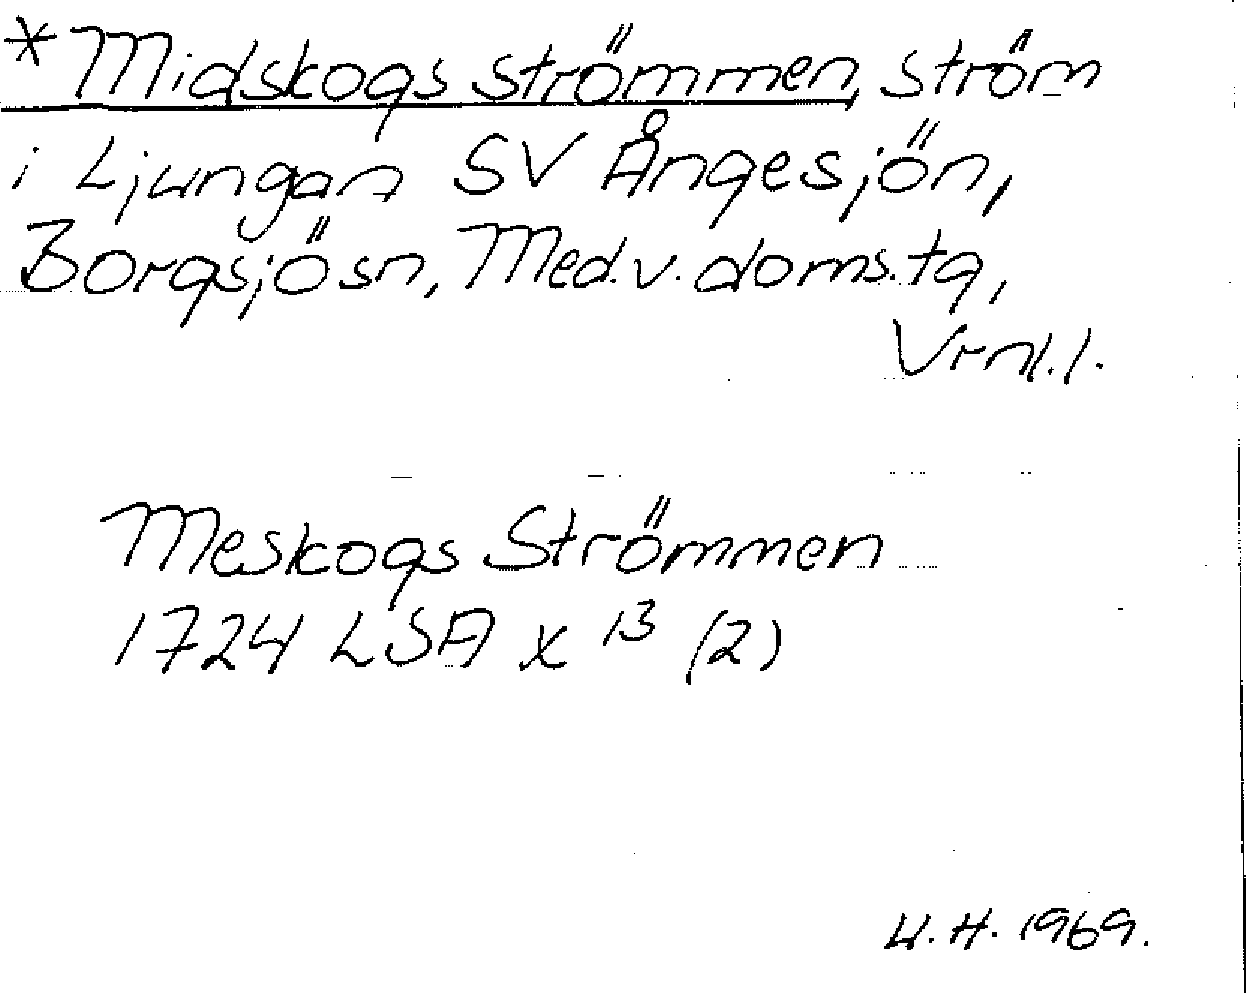 *Midskogs strömmen, ström
i Ljungan SV Ångesjön,
Borgsjösn, Med.v.doms.tg,
Vrnl.l.
Meskogs Strömmen
1724 LSA x 13 (2)
U.H. 1969.